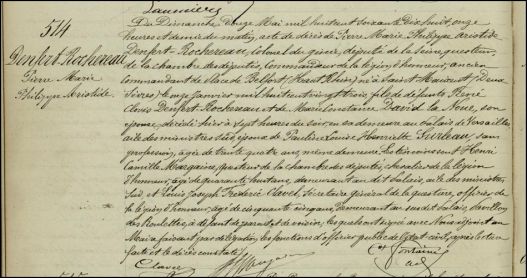 514
Denfert Rochereau
Pierre Marie
Philippe Aristide
Du Dimanche douze Mai mil huit cent soixante dix huit, onze
heures et demie du matin, acte de décès de Pierre Marie Philippe Aristide
Denfert-Rochereau, Colonel du génie, député de la Seine, questeur
de la chambre des députés, Commandeur de la légion d'honneur, ancien
commandant de place de Belfort (Haut Rhin), né à Saint Maixent (Deux
Sèvres) le onze janvier mil huit cent vingt trois, fils de défunts René
Clovis Denfert-Rochereau et de Marie Constance David la Noue, son
épouse, décédé hier à sept heures du soir en sa demeure au palais de Versailles,
aile des ministres sud, époux de Pauline Louise Henriette Surleau, sans
profession, âgée de trente quatre ans, même demeure. Les témoins sont Henri
Camille Margaine, questeur de la chambre des députés, chevalier de la légion
d'honneur, âgé de quarante huit ans, demeurant au dit palais, aile des ministres
Sud et Louis Joseph Frédéric Clavel, Secrétaire général de la questure, officier de
la légion d'honneur, âgé de cinquante cinq ans, demeurant au susdit palais, pavillon
des Roulettes, à défaut de parent et de voisin, lesquels ont signé avec Nous adjoint au
Maire faisant par délégation les fonctions d'officier public de l'état civil, après lecture
faite et le décès constaté.